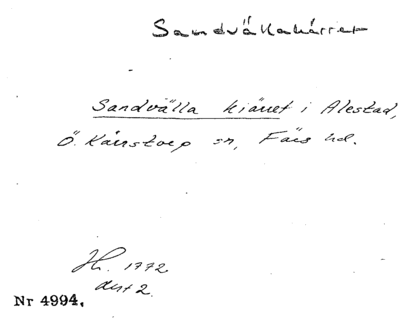 Sandvällakärret
Sandvälla kiärret i Alestad,
Ö. Kärrstorp sn, Färs hd.
Hi. 1772
akt 2.
Nr 4994.